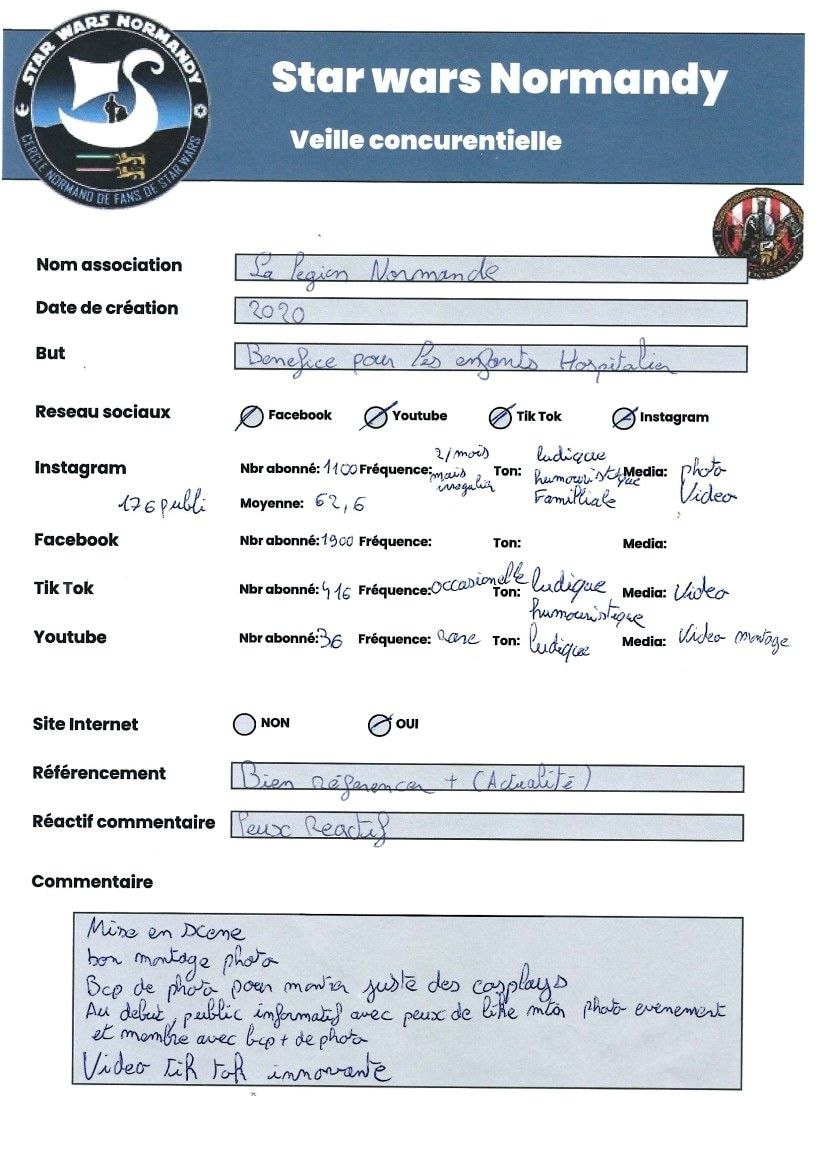 STAR WARS NORMANDY
CERCLE NORMAND DE FANS DE STAR WARS
Star wars Normandy
Veille concurentielle
Nom association La legion Normande
Date de création 2020
But Benefice pour les enfants Hospitalier
Reseau sociaux Facebook Youtube Tik Tok Instagram
Instagram Nbr abonné: 1100 Fréquence: 2/mois mais irregulier Ton: ludique humouristique Familliale Media: photo Video
176 publi Moyenne: 62,6
Facebook Nbr abonné: 1900 Fréquence: Ton: Media:
Tik Tok Nbr abonné: 416 Fréquence: occasionelle Ton: ludique humouristique Media: Video
Youtube Nbr abonné: 36 Fréquence: Rare Ton: ludique Media: Video montage
Site Internet NON OUI
Référencement Bien réferencer + (Actualité)
Réactif commentaire Peux Reactif
Commentaire
Mise en scene
bon montage photo
Bcp de photo pour montrer juste des cosplays
Au debut, public informatif avec peux de like photo evenement
et membre avec bcp + de photo
Video tik tok innovante